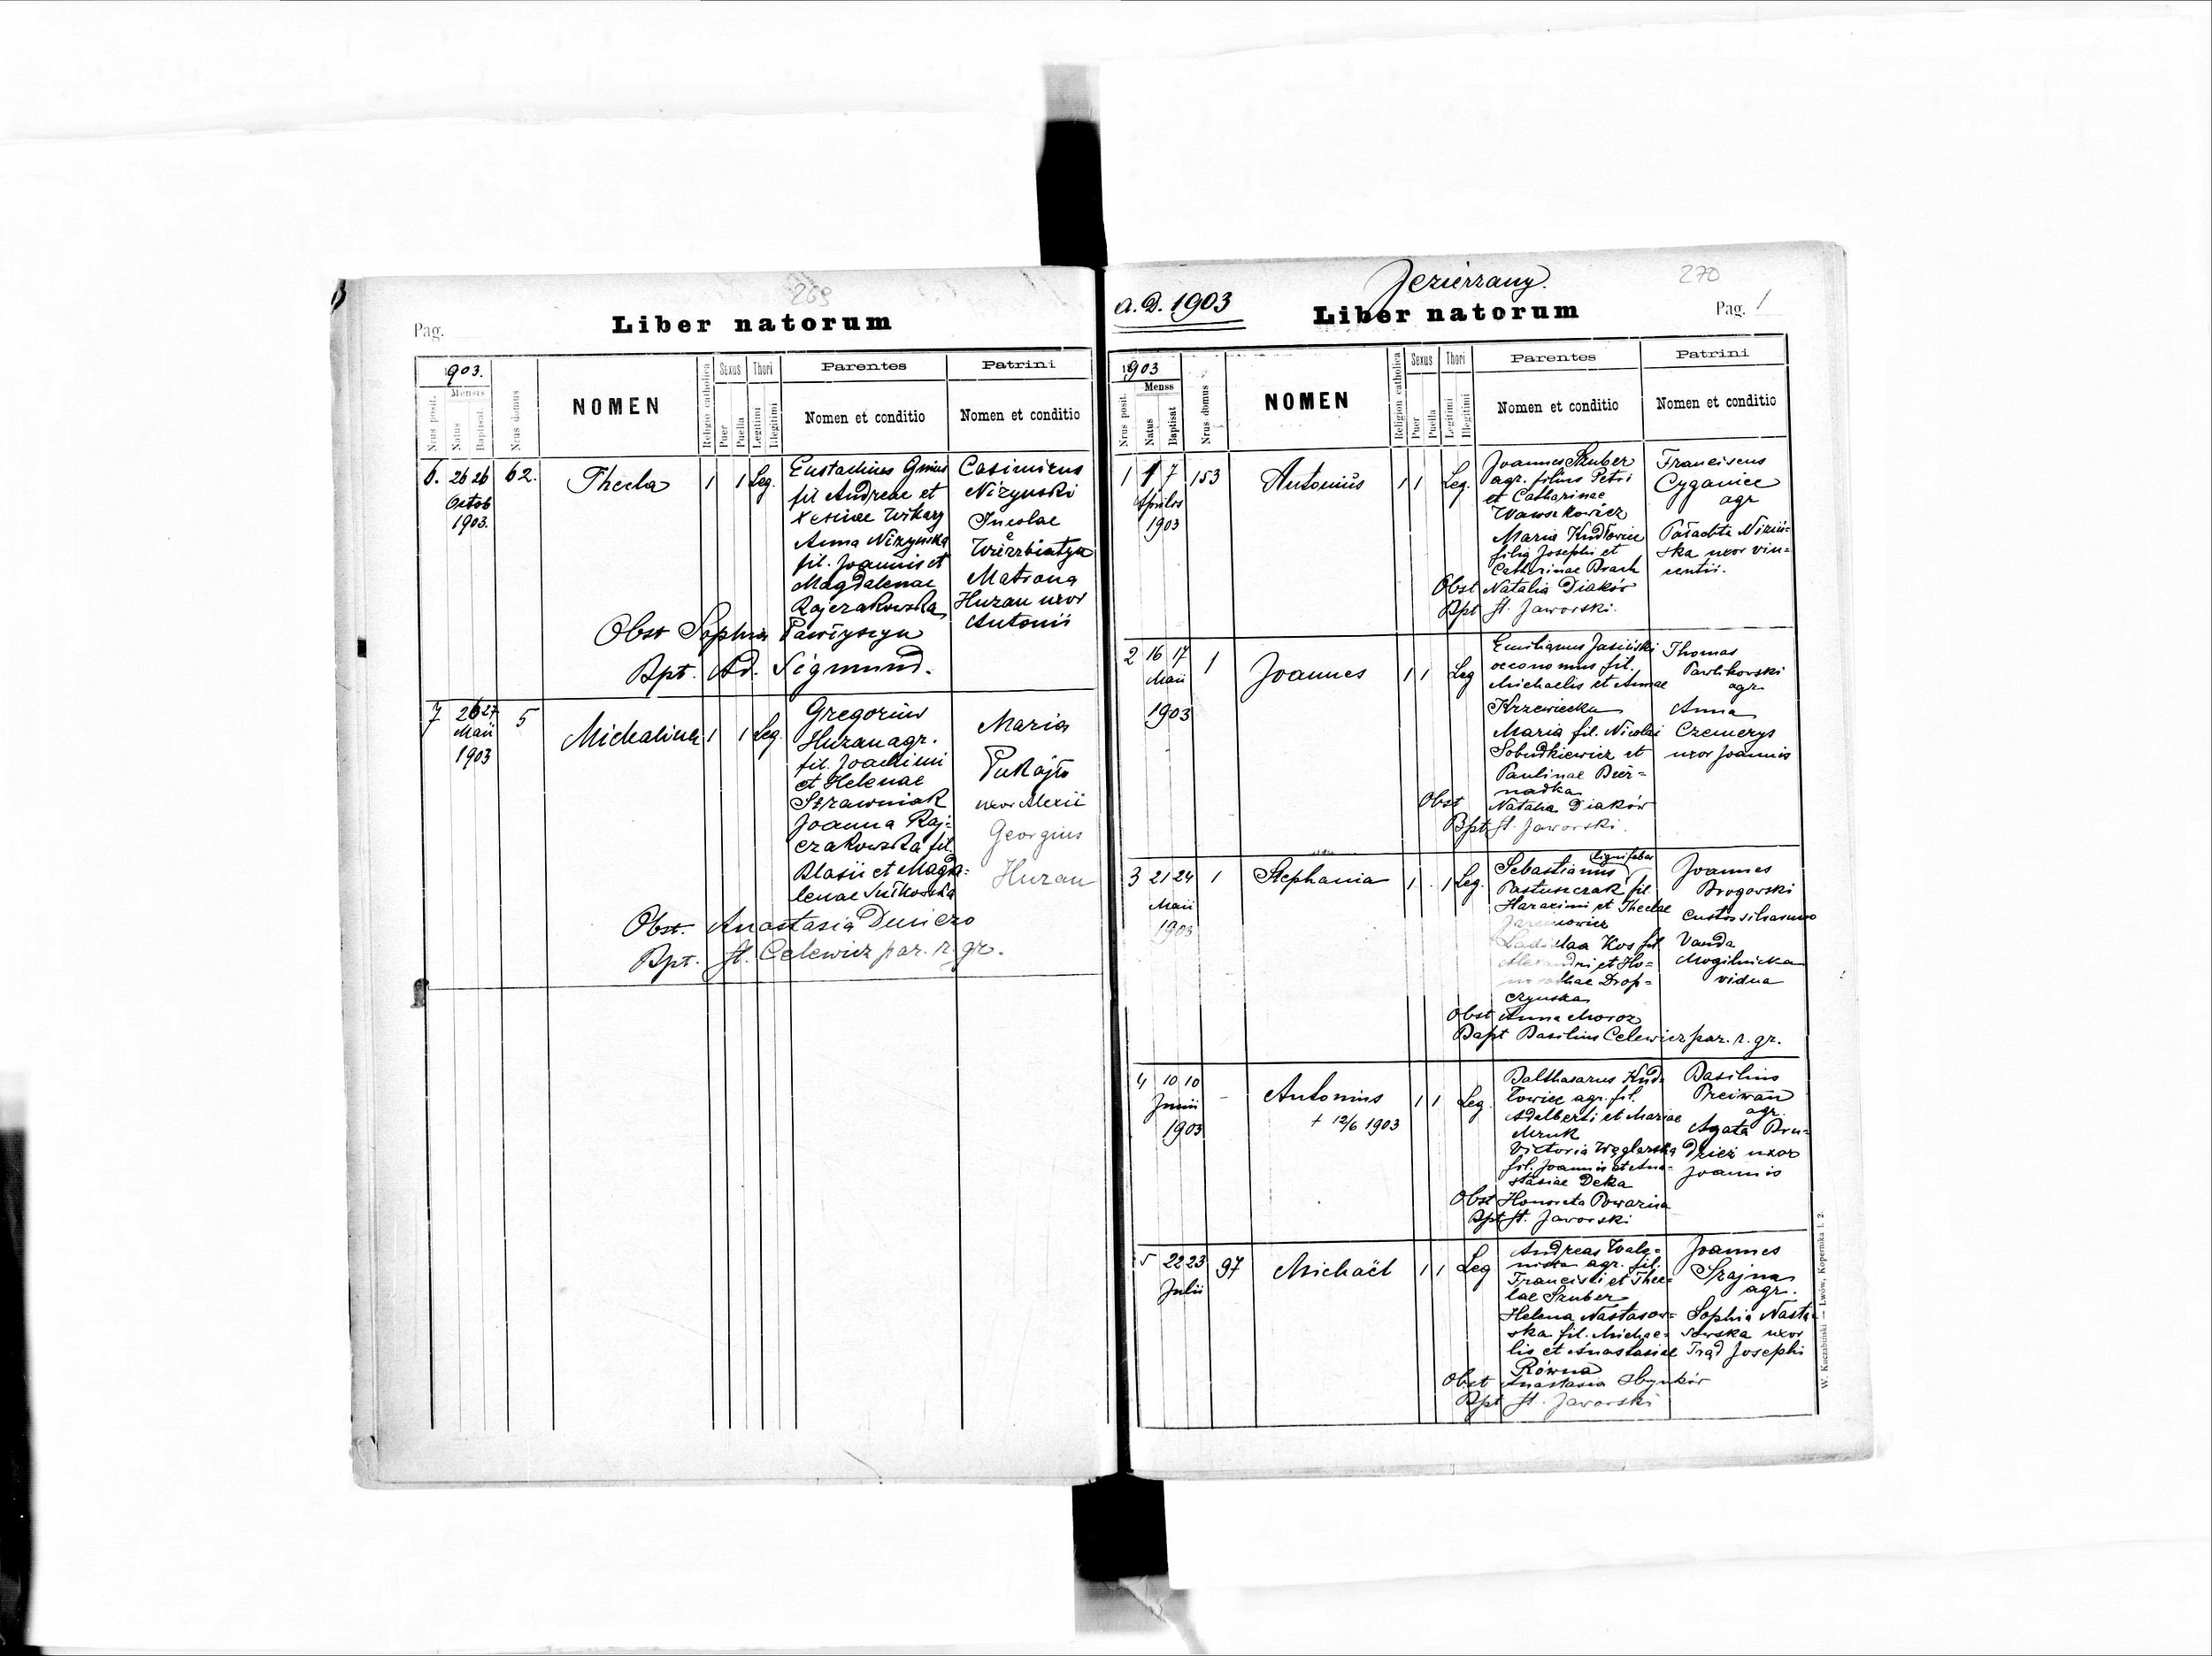 269
Pag.
Liber natorum
1903.
Mensis
Nrus posit.
Natus
Baptisat.
Nrus domus
NOMEN
Religio catholica
Sexus
Puer
Puella
Thori
Legitimi
Illegitimi
Parentes
Nomen et conditio
Patrini
Nomen et conditio
6. 26 26 62. Thecla 1 1 Leg.
Octob
1903.
Eustachius
fil Andreae et
Anna Nizynska
fil. Joannis et
Magdalenae
Rajczakowska
Casimirus
Nizynski
Incolae
Matrona
Huzan uxor
Antonii
Obst Sophia Pawłyszyn
Bpt. Ad. Sigmund.
7 26 27 5 Michalina 1 1 Leg.
Maii
1903
Gregorius
Huzan agr.
fil. Joachimi
et Helenae
Strawniak
Joanna Raj=
czakowska fil.
Blasii et Magda=
lenae
Maria
uxor Alexii
Georgius
Huzan
Obst. Anastasia
Bpt. Celewicz par. r. gr.
270
Jezierzany.
a. D. 1903
Liber natorum
Pag. 1
1903
Menss
Nrus posit.
Natus
Baptisat
Nrus domus
NOMEN
Religion catholica
Sexus
Puer
Puella
Thori
Legitimi
Illegitimi
Parentes
Nomen et conditio
Patrini
Nomen et conditio
1 7 153 Antonius 1 1 Leg.
Aprilis
1903
Joannes Szuber
agr. filius Petri
et Catharinae
Wawszkowicz
Maria Kudłowiec
filia Josephi et
Catharinae
Franciscus
Cyganiec
agr
ska uxor Vin=
centii.
Obst Natalia Diaków
Bpt St. Jaworski.
2 16 17 1 Joannes 1 1 Leg
Maii
1903
Emilianus Jasiński
oeconomus fil.
Michaelis et Annae
Krzewiecka
Maria fil. Nicolai
Sobudkiewicz et
Paulinae Bier=
nadka
Thomas
Pawlikowski
agr
Anna
Czemerys
uxor Joannis
Obst Natalia Diaków
Bpt St. Jaworski.
3 21 24 1 Stephania 1 1 Leg.
Maii
1903
Sebastianus lignifaber
Pastuszczak fil
et Theclae
Ladislaa Kos fil
Drop=
czynska
Joannes
Brogowski
custos
Vanda
Mogilnicka
vidua
Obst Anna Moroz
Bapt Basilius Celewicz par. r. gr.
4 10 10 - Antonius 1 1 Leg.
Junii
1903
+ 12/6 1903
Balthasarus Kud=
łowiec agr. fil.
Adalberti et Mariae
Mruk
Victoria Węglarska
fil. Joannis et Ana=
stasiae Deka
Basilius
Preiwan
agr.
Agata Bru=
uxor
Joannis
Obst Honorata Powazna
Bpt St. Jaworski
5 22 23 97 Michaël 1 1 Leg
Julii
Andreas
agr. fil.
Francisci et Thec=
lae Szuber
Helena Nastasow=
ska fil. Michae=
lis et Anastasiae
Równa
Joannes
Szajna
agr.
Sophia Nasta=
sowska uxor
Josephi
Obst Anastasia
Bpt St. Jaworski
W. Kuczabiński — Lwów, Kopernika l. 2.